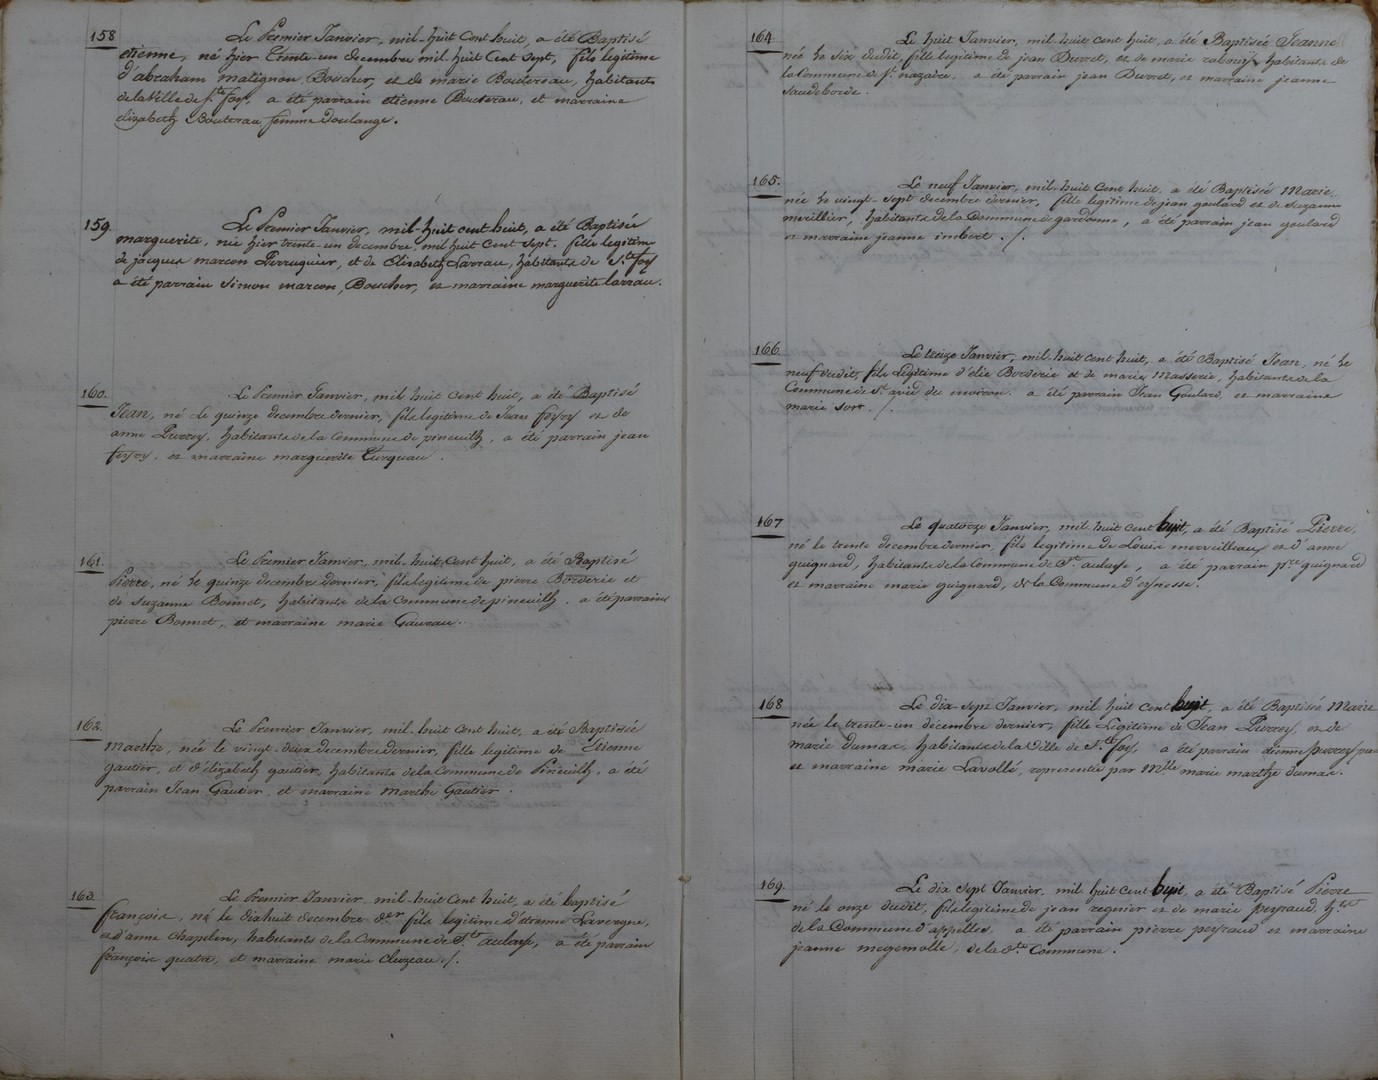 158
Le Premier Janvier, mil-huit Cent huit, a été Baptisé
étienne, né hier Trente-un decembre mil huit Cent Sept, fils legitime
d'abraham matignon Boucher, et de marie Boutereau, habitants
de la Ville de Ste foy, a été parrain etienne Boutereau, et marraine
elizabeth Boutereau femme Doulange.
159
Le Premier Janvier, mil-huit cent huit, a été Baptisée
marguerite, née hier trente-un decembre, mil huit Cent Sept, fille legitime
de jacques marcon Perruquier, et de Elizabeth Larrau, habitants de Ste foy
a été parrain Simon marcon, Boucher, et marraine marguerite larrau.
160.
Le Premier Janvier, mil huit Cent huit, a été Baptisé
Jean, né le quinze decembre dernier, fils legitime de Jean feyry et de
anne Pierrey, habitants de la Commune de pineuilh, a été parrain jean
feyry, et marraine marguerite Turqueau.
161.
Le Premier Janvier, mil-huit Cent huit, a été Baptisé
Pierre, né le quinze decembre dernier, fils legitime de pierre Borderie et
de Suzanne Bonnet, habitants de la Commune de pineuilh. a été parrain
pierre Bonnet, et marraine marie Gaureau.
162.
Le Premier Janvier, mil-huit Cent huit, a été Baptisée
Marthe, née le vingt-deux decembre dernier, fille legitime de Etienne
gautier, et d'élizabeth gautier, habitants de la Commune de Pineuilh, a été
parrain Jean Gautier et marraine Marthe Gautier.
163.
Le Premier Janvier, mil-huit Cent huit, a été baptisé
françois, né le dixhuit decembre der fils legitime d'étienne Lavergne,
et d'anne Chapelin, habitants de la Commune de St. aulaye, a été parrain
françois quatre, et marraine marie Cluzeau ./.
164
Le huit Janvier, mil-huit Cent huit, a été Baptisée Jeanne
née le six dudit, fille legitime de jean Durret, et de marie rabouy habitants de
la Commune de St. nazaire. a été parrain jean Durret, et marraine jeanne
Saudeborde.
165.
Le neuf Janvier, mil-huit Cent huit, a été Baptisée Marie
née le vingt-sept decembre dernier, fille legitime de jean goulard et de Suzanne
merillier, habitants de la Commune de gardonne, a été parrain jean goulard
et marraine jeanne imbert ./.
166
Le treize Janvier, mil-huit cent huit, a été Baptisé Jean, né le
neuf dudit, fils Legitime d'élie Borderie et de marie Masserie, habitants de la
Commune de St. avid du moiron. a été parrain Jean Goulard, et marraine
marie Sort ./.
167
Le quatorze Janvier, mil huit cent huit, a été Baptisé Pierre,
né le trente decembre dernier, fils legitime de Louis merveilleau et d'anne
guignard, habitants de la Commune de St. aulaye, a été parrain pre guignard
et marraine marie guignard, de la Commune d'eynesse.
168
Le dix-sept Janvier, mil huit Cent huit, a été Baptisée Marie
née le trente-un decembre dernier, fille Legitime de Jean Pierrey, et de
marie dumas, habitants de la Ville de Ste foy, a été parrain étienne pierrey
et marraine marie Lavollé, representée par Mlle marie marthe dumas.
169.
Le dix sept Janvier, mil huit cent huit, a été Baptisé Pierre
né le onze dudit, fils legitime de jean regnier et de marie peyraud hts
de la Commune d'appelles. a été parrain pierre peyraud et marraine
jeanne megemolle, de la dte Commune.